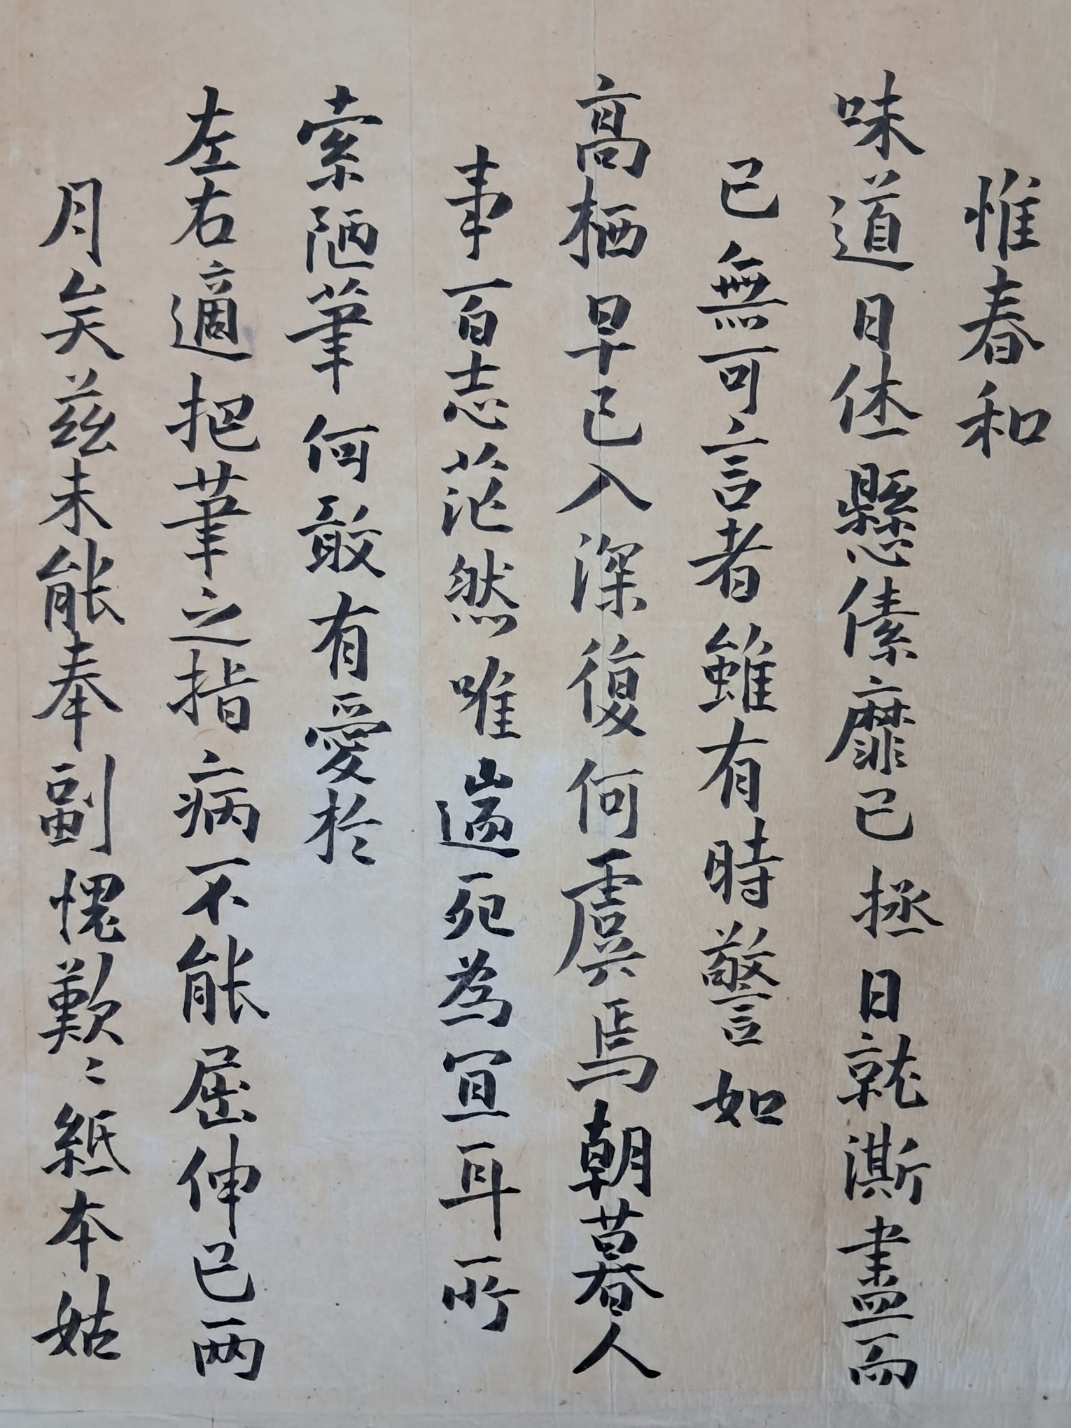 惟春和
味道日休懸傃靡已拯日就澌盡而
已無可言者雖有時警如
高栖早已入深復何虞焉朝暮人
事百志茫然唯遄死為宜耳所
索陋筆何敢有愛於
左右適把筆之指病不能屈伸已兩
月矣茲未能奉副愧歎〻紙本姑